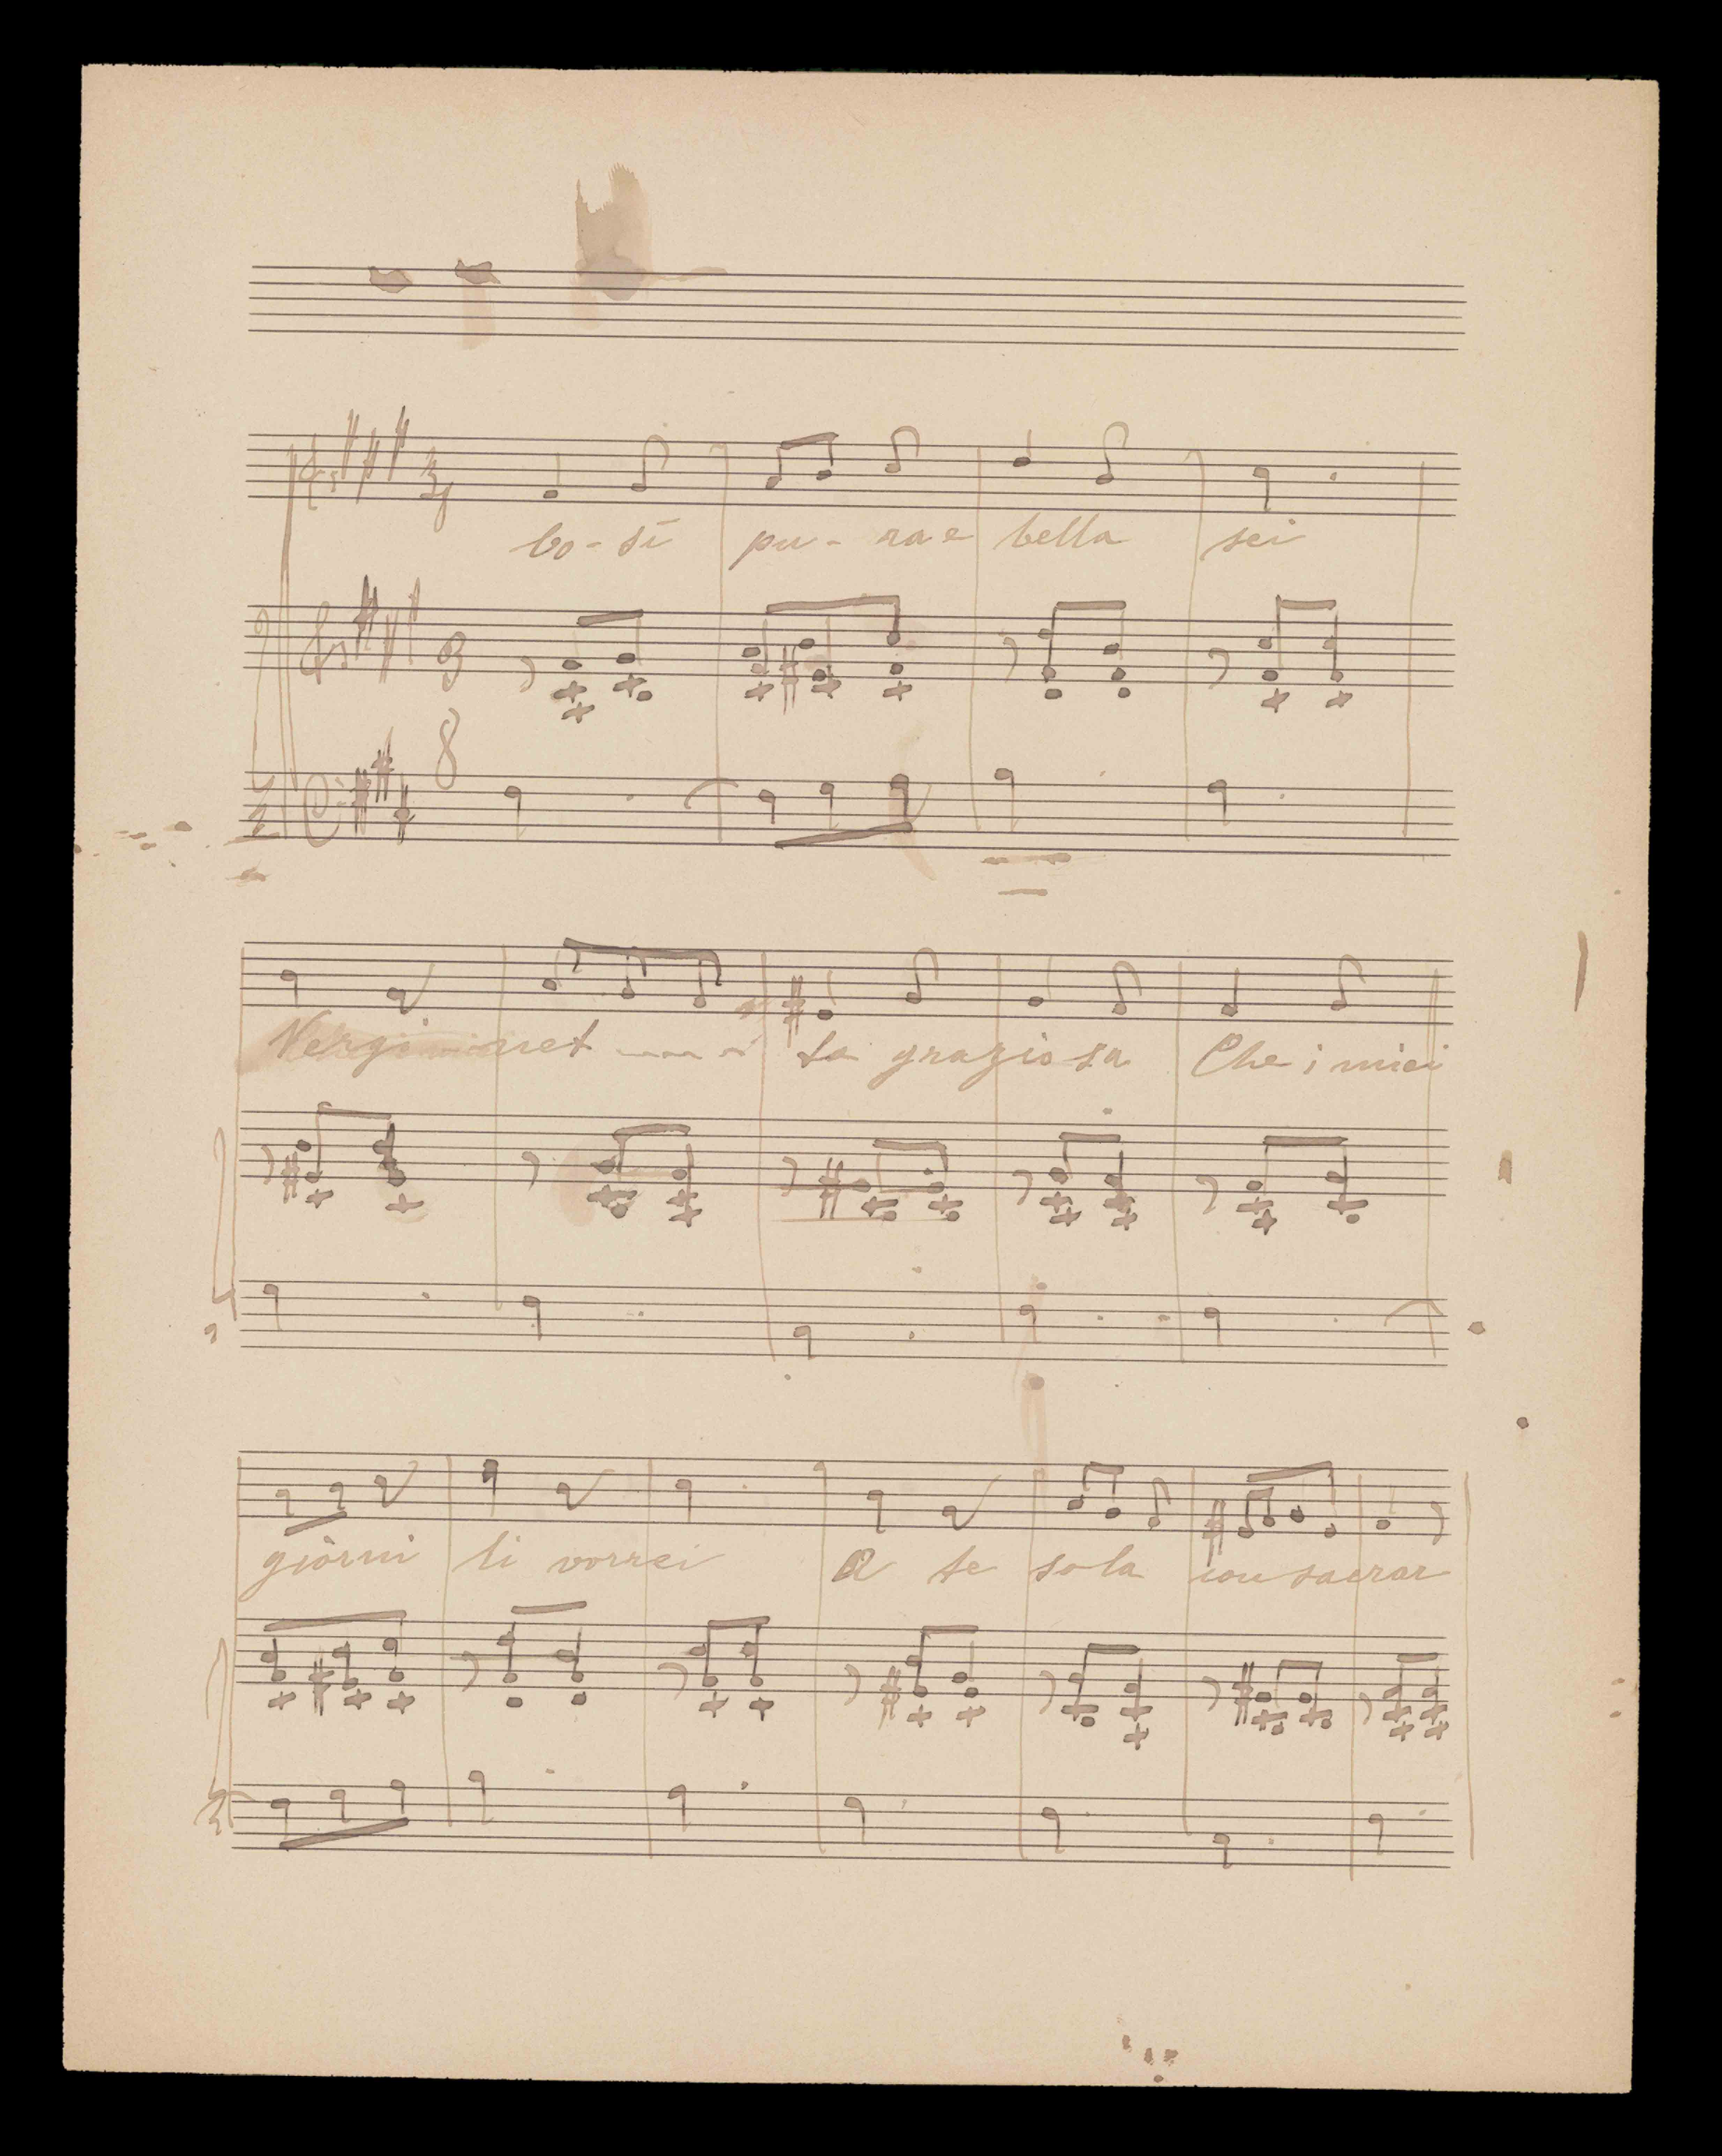 Co-sì pu-ra e bella sei
Verginnet - - - ta graziosa Che i miei
giorni li vorrei A te sola consacrar